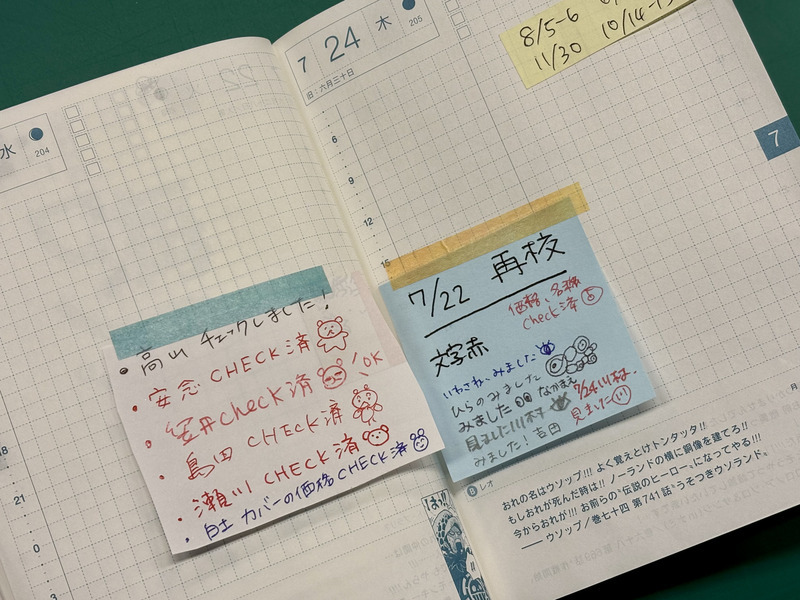 水
204
18
21
0
3
・高山 チェックしました!
・安念 CHECK済
・笠井check済 OK
・島田 CHECK済
・瀬川 CHECK済
・白土 カバーの価格CHECK済
7 24 木
205
旧・六月三十日
6
9
12
15
8/5-6
11/30
10/14-15
7
7/22 再校
価格、名称
check済 吉
文字赤
いわさね〜みました
ひらのみました
みました なかまえ
見ました!川村
みました!吉田
7/24川村、
見ました
月
はっ!!
⑧レオ
おれの名はウソップ!!! よく覚えとけトンタッタ!!
もしおれが死んだ時は!! ノーランドの横に銅像を建てろ!!
今からおれが!!! お前らの“伝説のヒーロー”になってやる!!!
── ウソップ/巻七十四 第741話“うそつきウソランド”